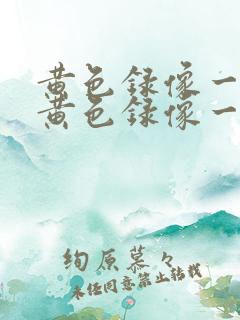 黄色録像一
黄色録像一
绚原慕々
未经同意禁止转载